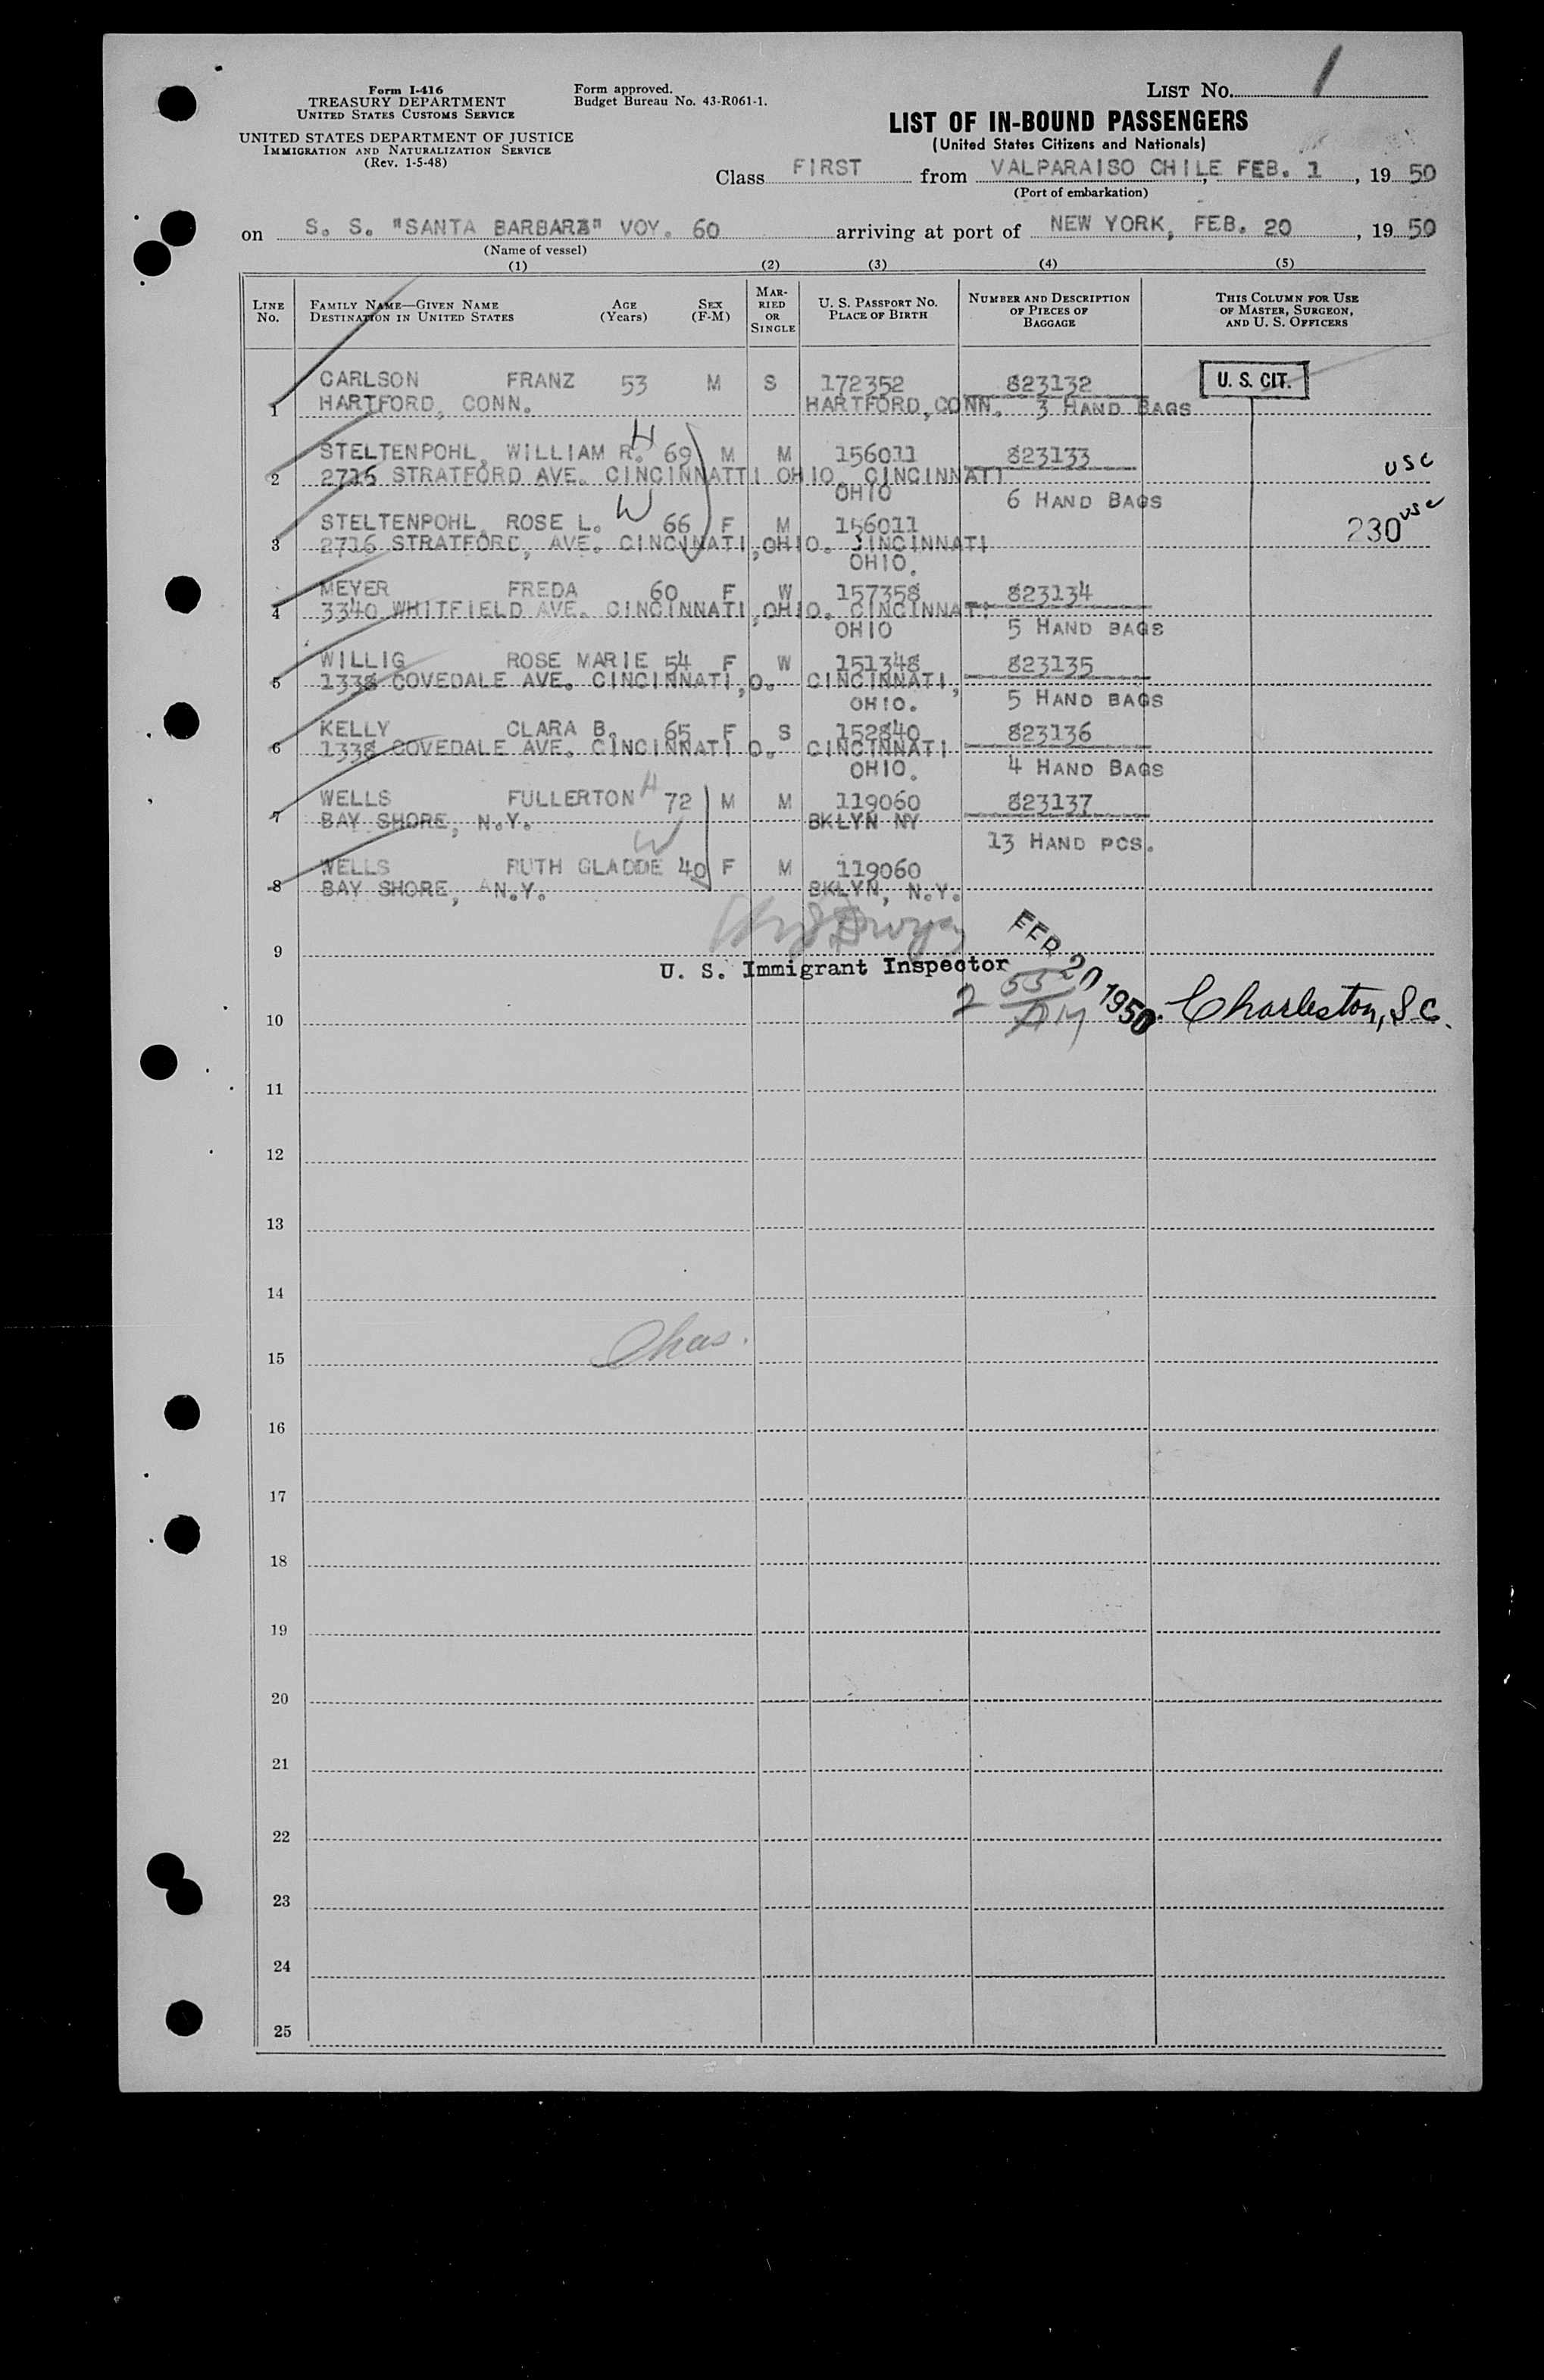 Form I-416
TREASURY DEPARTMENT
UNITED STATES CUSTOMS SERVICE
UNITED STATES DEPARTMENT OF JUSTICE
IMMIGRATION AND NATURALIZATION SERVICE
(Rev. 1-5-48)
Form approved.
Budget Bureau No. 43-R061-1.
LIST No. 1
LIST OF IN-BOUND PASSENGERS
(United States Citizens and Nationals)
Class FIRST from VALPARAISO CHILE, FEB. 1, 19 50
(Port of embarkation)
on S. S. "SANTA BARBARA" VOY. 60 arriving at port of NEW YORK, FEB. 20, 19 50
(Name of vessel)
(1) (2) (3) (4) (5)
LINE No.
FAMILY NAME—GIVEN NAME AGE (Years) SEX (F-M)
DESTINATION IN UNITED STATES
MAR-RIED OR SINGLE
U. S. PASSPORT NO. PLACE OF BIRTH
NUMBER AND DESCRIPTION OF PIECES OF BAGGAGE
THIS COLUMN FOR USE OF MASTER, SURGEON, AND U. S. OFFICERS
CARLSON FRANZ 53 M S 172352 823132 U. S. CIT.
1 HARTFORD, CONN. HARTFORD, CONN. 3 HAND BAGS
STELTENPOHL, WILLIAM R. H 69 M M 156011 823133 USC
2 2716 STRATFORD AVE. CINCINNATTI OHIO. CINCINNATI
OHIO 6 HAND BAGS
STELTENPOHL, ROSE L. W 66 F M 156011 230 USC
3 2716 STRATFORD, AVE. CINCINNATI, OHIO. CINCINNATI
OHIO.
MEYER FREDA 60 F W 157358 823134
4 3340 WHITFIELD AVE. CINCINNATI, OHIO. CINCINNATI
OHIO 5 HAND BAGS
WILLIG ROSE MARIE 54 F W 151348 823135
5 1338 COVEDALE AVE. CINCINNATI, O. CINCINNATI,
OHIO. 5 HAND BAGS
KELLY CLARA B. 65 F S 152840 823136
6 1338 COVEDALE AVE. CINCINNATI O. CINCINNATI
OHIO. 4 HAND BAGS
WELLS FULLERTON H 72 M M 119060 823137
7 BAY SHORE, N.Y. BKLYN NY
13 HAND PCS.
WELLS RUTH GLADDE W 40 F M 119060
8 BAY SHORE, N.Y. BKLYN, N.Y.
9
U. S. Immigrant Inspector
FEB 20 1950
10 Charleston, S.C.
11
12
13
14
15 Chas.
16
17
18
19
20
21
22
23
24
25